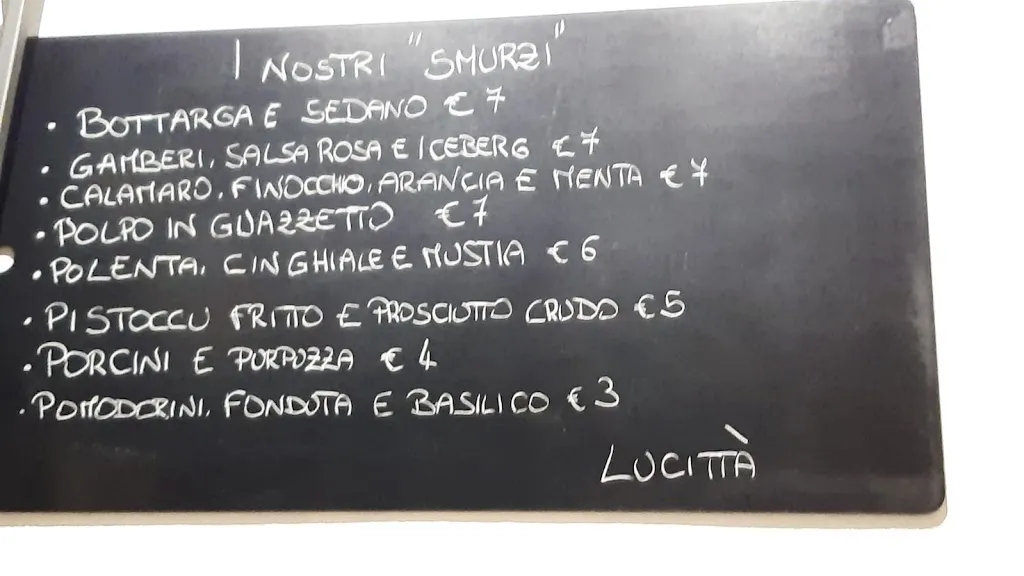 I NOSTRI "SMURZI"
• BOTTARGA E SEDANO € 7
• GAMBERI, SALSA ROSA E ICEBERG € 7
• CALAMARO, FINOCCHIO, ARANCIA E MENTA € 7
• POLPO IN GUAZZETTO € 7
• POLENTA, CINGHIALE E MUSTIA € 6
• PISTOCCU FRITTO E PROSCIUTTO CRUDO € 5
• PORCINI E PURPUZZA € 4
• POMODORINI, FONDUTA E BASILICO € 3
LUCITTÀ